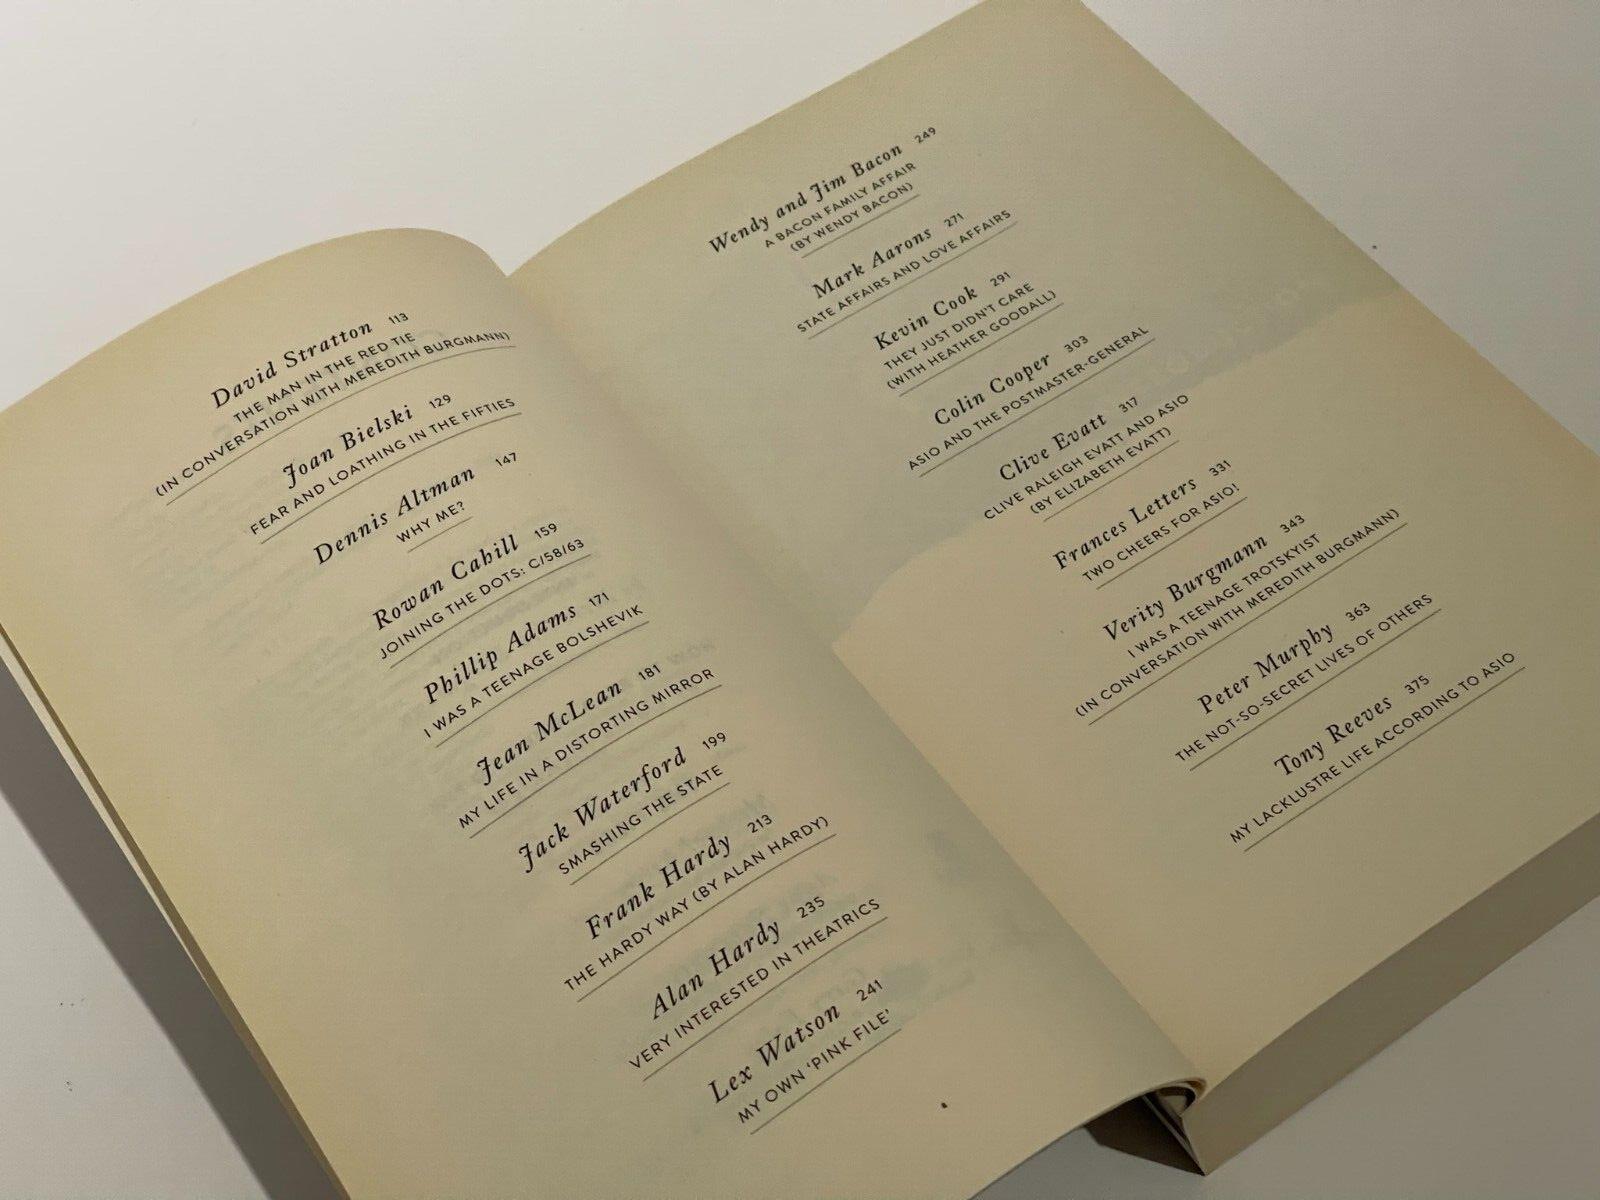 David Stratton 113
THE MAN IN THE RED TIE
(IN CONVERSATION WITH MEREDITH BURGMANN)
Joan Bielski 129
FEAR AND LOATHING IN THE FIFTIES
Dennis Altman 147
WHY ME?
Rowan Cahill 159
JOINING THE DOTS: C/58/63
Phillip Adams 171
I WAS A TEENAGE BOLSHEVIK
Jean McLean 181
MY LIFE IN A DISTORTING MIRROR
Jack Waterford 199
SMASHING THE STATE
Frank Hardy 213
THE HARDY WAY (BY ALAN HARDY)
Alan Hardy 235
VERY INTERESTED IN THEATRICS
Lex Watson 241
MY OWN 'PINK FILE'
Wendy and Jim Bacon 249
A BACON FAMILY AFFAIR
(BY WENDY BACON)
Mark Aarons 271
STATE AFFAIRS AND LOVE AFFAIRS
Kevin Cook 291
THEY JUST DIDN'T CARE
(WITH HEATHER GOODALL)
Colin Cooper 303
ASIO AND THE POSTMASTER-GENERAL
Clive Evatt 317
CLIVE RALEIGH EVATT AND ASIO
(BY ELIZABETH EVATT)
Frances Letters 331
TWO CHEERS FOR ASIO!
Verity Burgmann 343
I WAS A TEENAGE TROTSKYIST
(IN CONVERSATION WITH MEREDITH BURGMANN)
Peter Murphy 363
THE NOT-SO-SECRET LIVES OF OTHERS
Tony Reeves 375
MY LACKLUSTRE LIFE ACCORDING TO ASIO